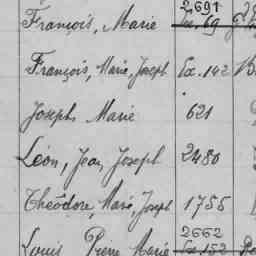 2691
François, Marie Ex. 69
François, Marie, Joseph Ex. 142
Joseph, Marie 621
Léon, Jean, Joseph 2480
Théodore, Marie, Joseph 1755
2662
Louis Pierre Marie Ex. 152